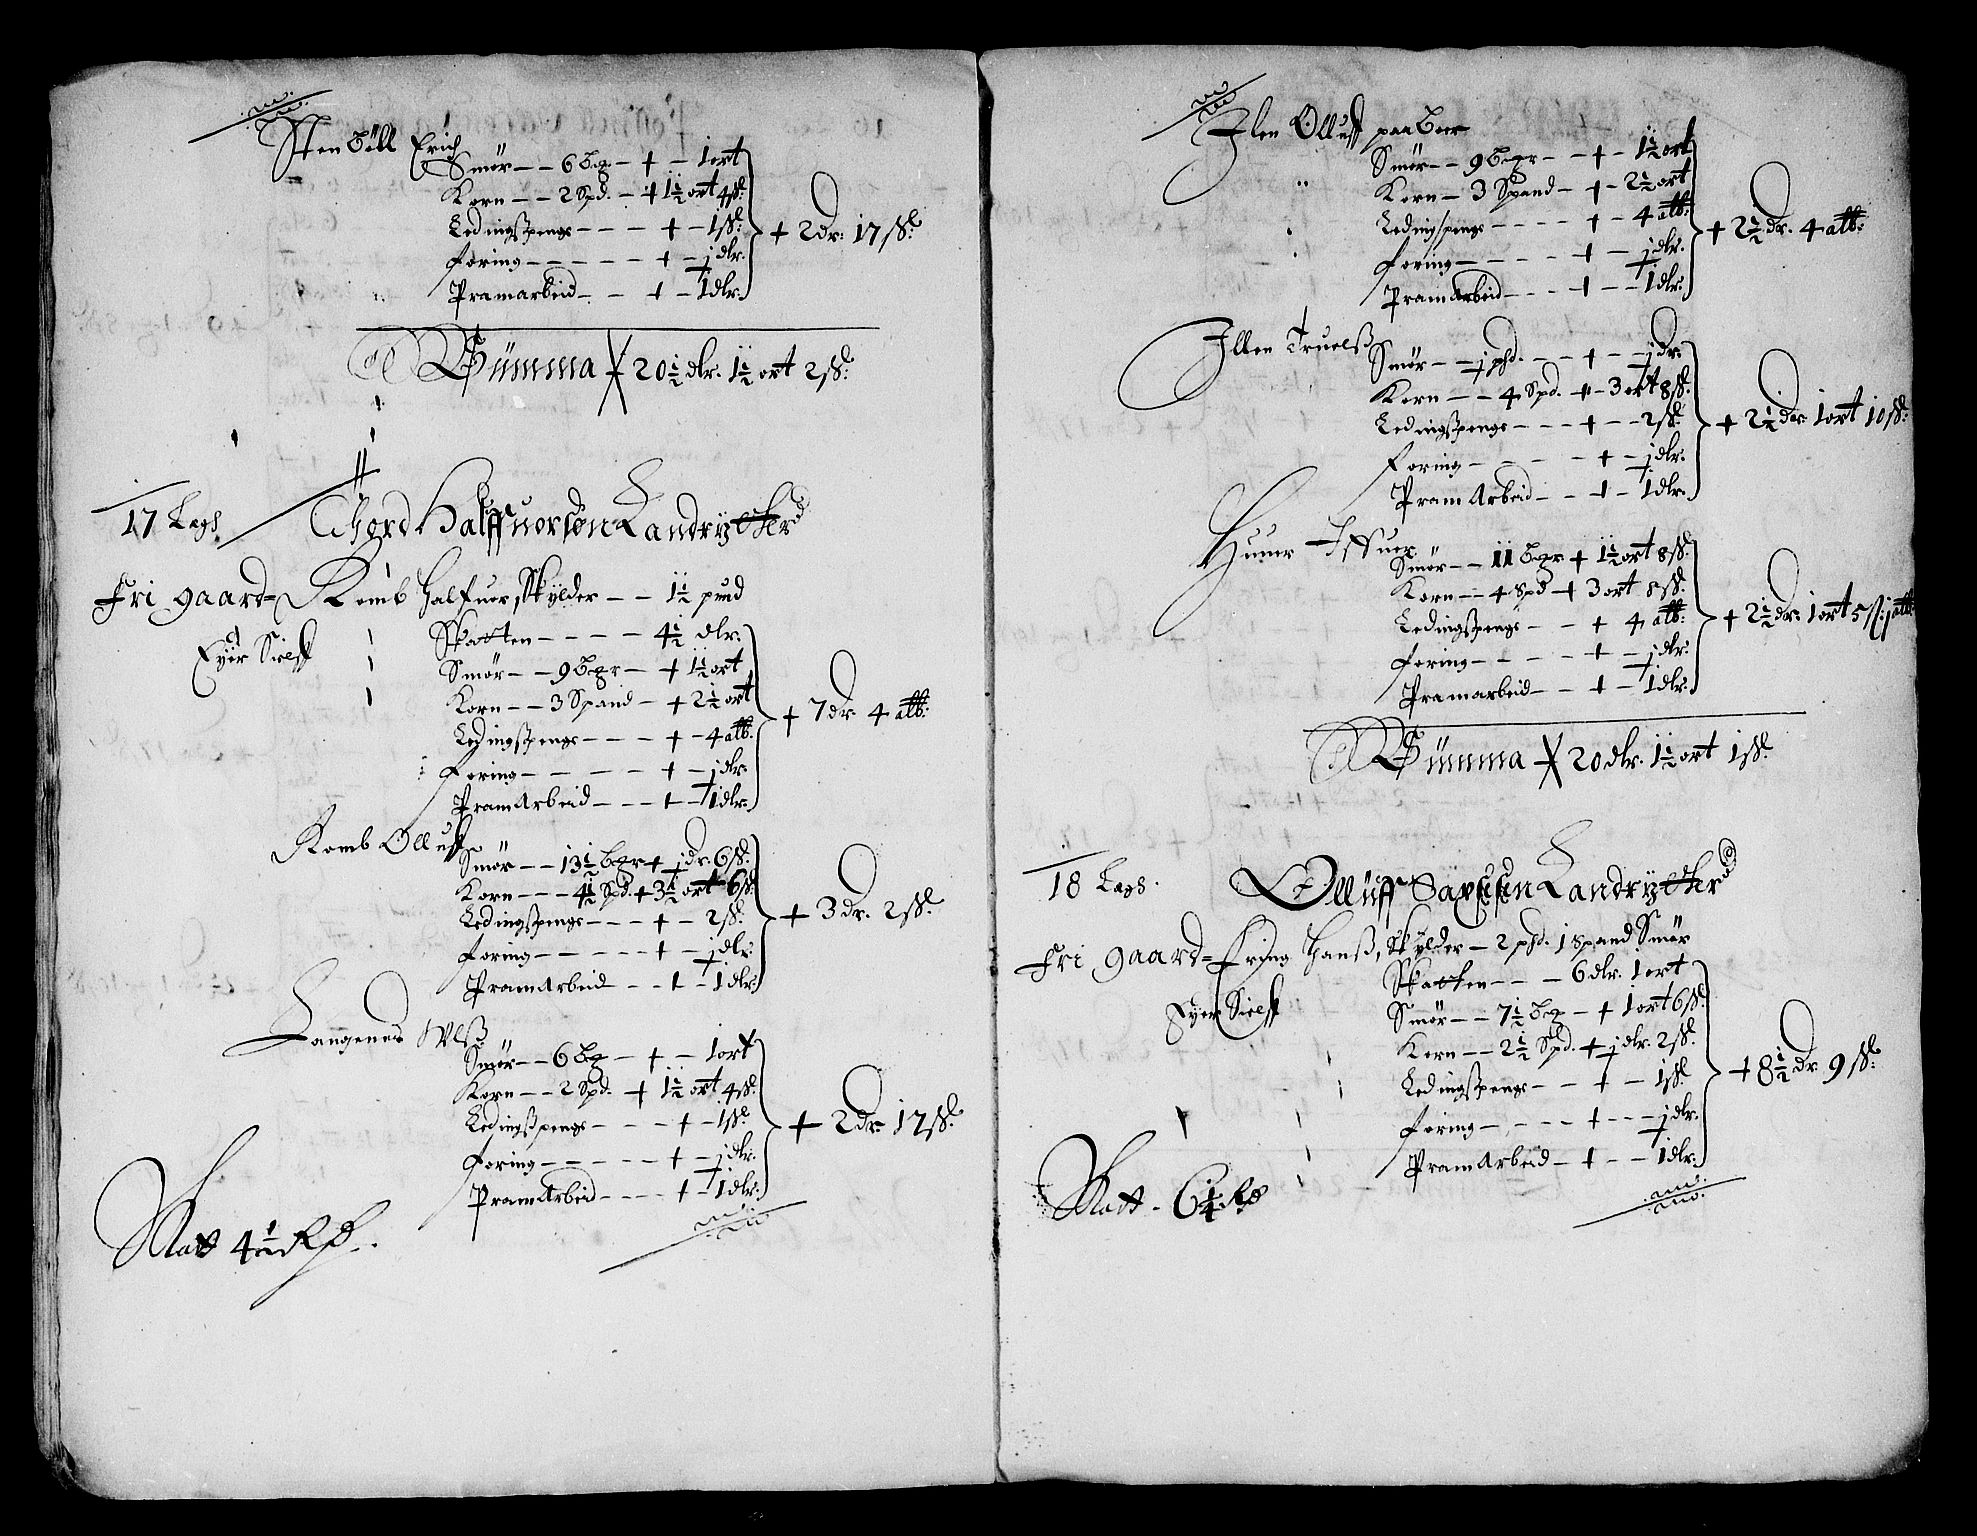 Stenböll Erich
Smör – – 6 bgr – + – 1 ort
Korn – – 2 Spd. – + 1½ ort 4 sk:
Ledingspenge – – – + – 1 sk:
foring – – – – – + – j dlr.
Pramarbeid – – + – 1 dlr:
+ 2 dr: 17 sk:
Summa + 20½ dlr. 1½ ort 2 sk:
17 Lags
Thord Halffuorsön Landryt
Fri gaard = Komb Halfuor, skylder – – 1½ pund
Eyer Sielff
Skatten – – – – 4½ dlr:
Smör – – 9 bgr – + 1½ ort
Korn – – 3 Spand – + 2½ ort
Ledingspenge – – – + – 4 alb:
foring – – – – – + – j dlr.
PramArbeid – – – + – 1 dlr:
+ 7 dr. 4 alb:
Komb Olluff
Smör – – 13½ bgr + j dr: 6 sk:
Korn – – 4½ Spd. + 3½ ort 6 sk
Ledingspenge – – – + – 2 sk:
foring – – – – – + – j dlr.
PramArbeid – – + – 1 dlr:
+ 3 dr. 2 sk:
Langenes
Smör – – 6 bg – + – 1 ort
Korn – – 2 Spd. + 1½ ort 4 sk:
Ledingspenge – – – – + – 1 sk:
foring – – – – – + – j dlr.
PramArbeid – – – + – 1 dlr:
+ 2 dr 17 sk:
Skatt 4½ Rd.
Ilen Olluff paa Ber
Smör – – 9 bgr – – + – 1½ ort
Korn – 3 Spand – + – 2½ ort
Ledingspenge – – – – + – 4 alb:
foring – – – – – + – j dlr.
PramArbeid – – – + – – 1 dlr:
+ 2½ dr. 4 alb:
Illen Truelss
Smör – – j pd. – – – + – – j dr:
Korn – – 4 Spd. + – 3 ort 8 sk:
Ledingspenge – – – + – – 2 sk:
Foring – – – – – + – j dlr.
PramArbeid – – + – 1 dlr.
+ 2½ dr 1 ort 10 sk:
Huner Iffuer
Smör – – 11 bgr + 1½ ort 8 sk:
Korn – – 4 spd + 3 ort 8 sk:
Ledingspenge – – + 4 alb:
foring – – – – + – j dlr.
Pramarbeid – – + – 1 dlr.
+ 2½ dr: 1 ort 5 sk: j alb
Summa + 20 dlr. 1½ ort 1 sk:
18 Lags.
Olluff Landryt
Fri gaard = Erijng Hanss, skylder – 2 pd. 1 Spand Smör
Eyer Sielff
Skatten – – – 6 dlr. 1 ort
Smör – – 7½ bg – + 1 ort 6 sk:
Korn – – 2½ Spd. + j dlr. 2 sk:
Ledingspenge – – + – 1 sk:
foring – – – – + – – j dlr.
PramArbeid – + – – 1 dlr.
+ 8½ dr. 9 sk:
Skatt – 6¼ Rd